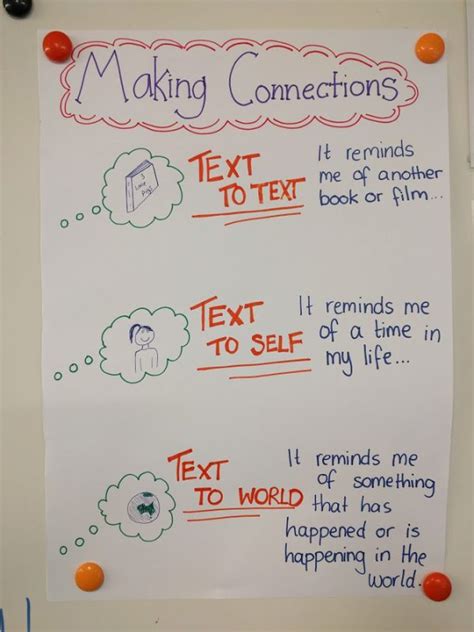 Making Connections
TEXT
TO TEXT
It reminds
me of another
book or film...
TEXT
TO SELF
It reminds me
of a time in
my life...
TEXT
TO WORLD
It reminds me
of something
that has
happened or is
happening in the
world.